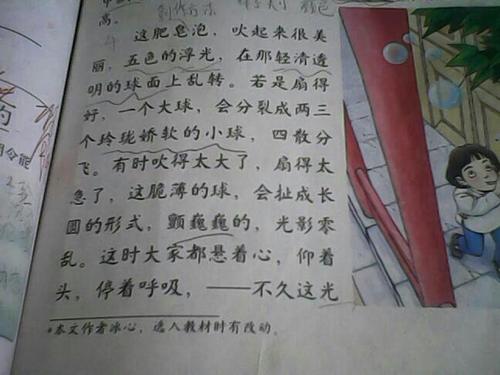 高。
这肥皂泡，吹起来很美
丽，五色的浮光，在那轻清透
明的球面上乱转。若是扇得
好，一个大球，会分裂成两三
个玲珑娇软的小球，四散分
飞。有时吹得太大了，扇得太
急了，这脆薄的球，会扯成长
圆的形式，颤巍巍的，光影零
乱。这时大家都悬着心，仰着
头，停着呼吸，——不久这光
*本文作者冰心，选入教材时有改动。